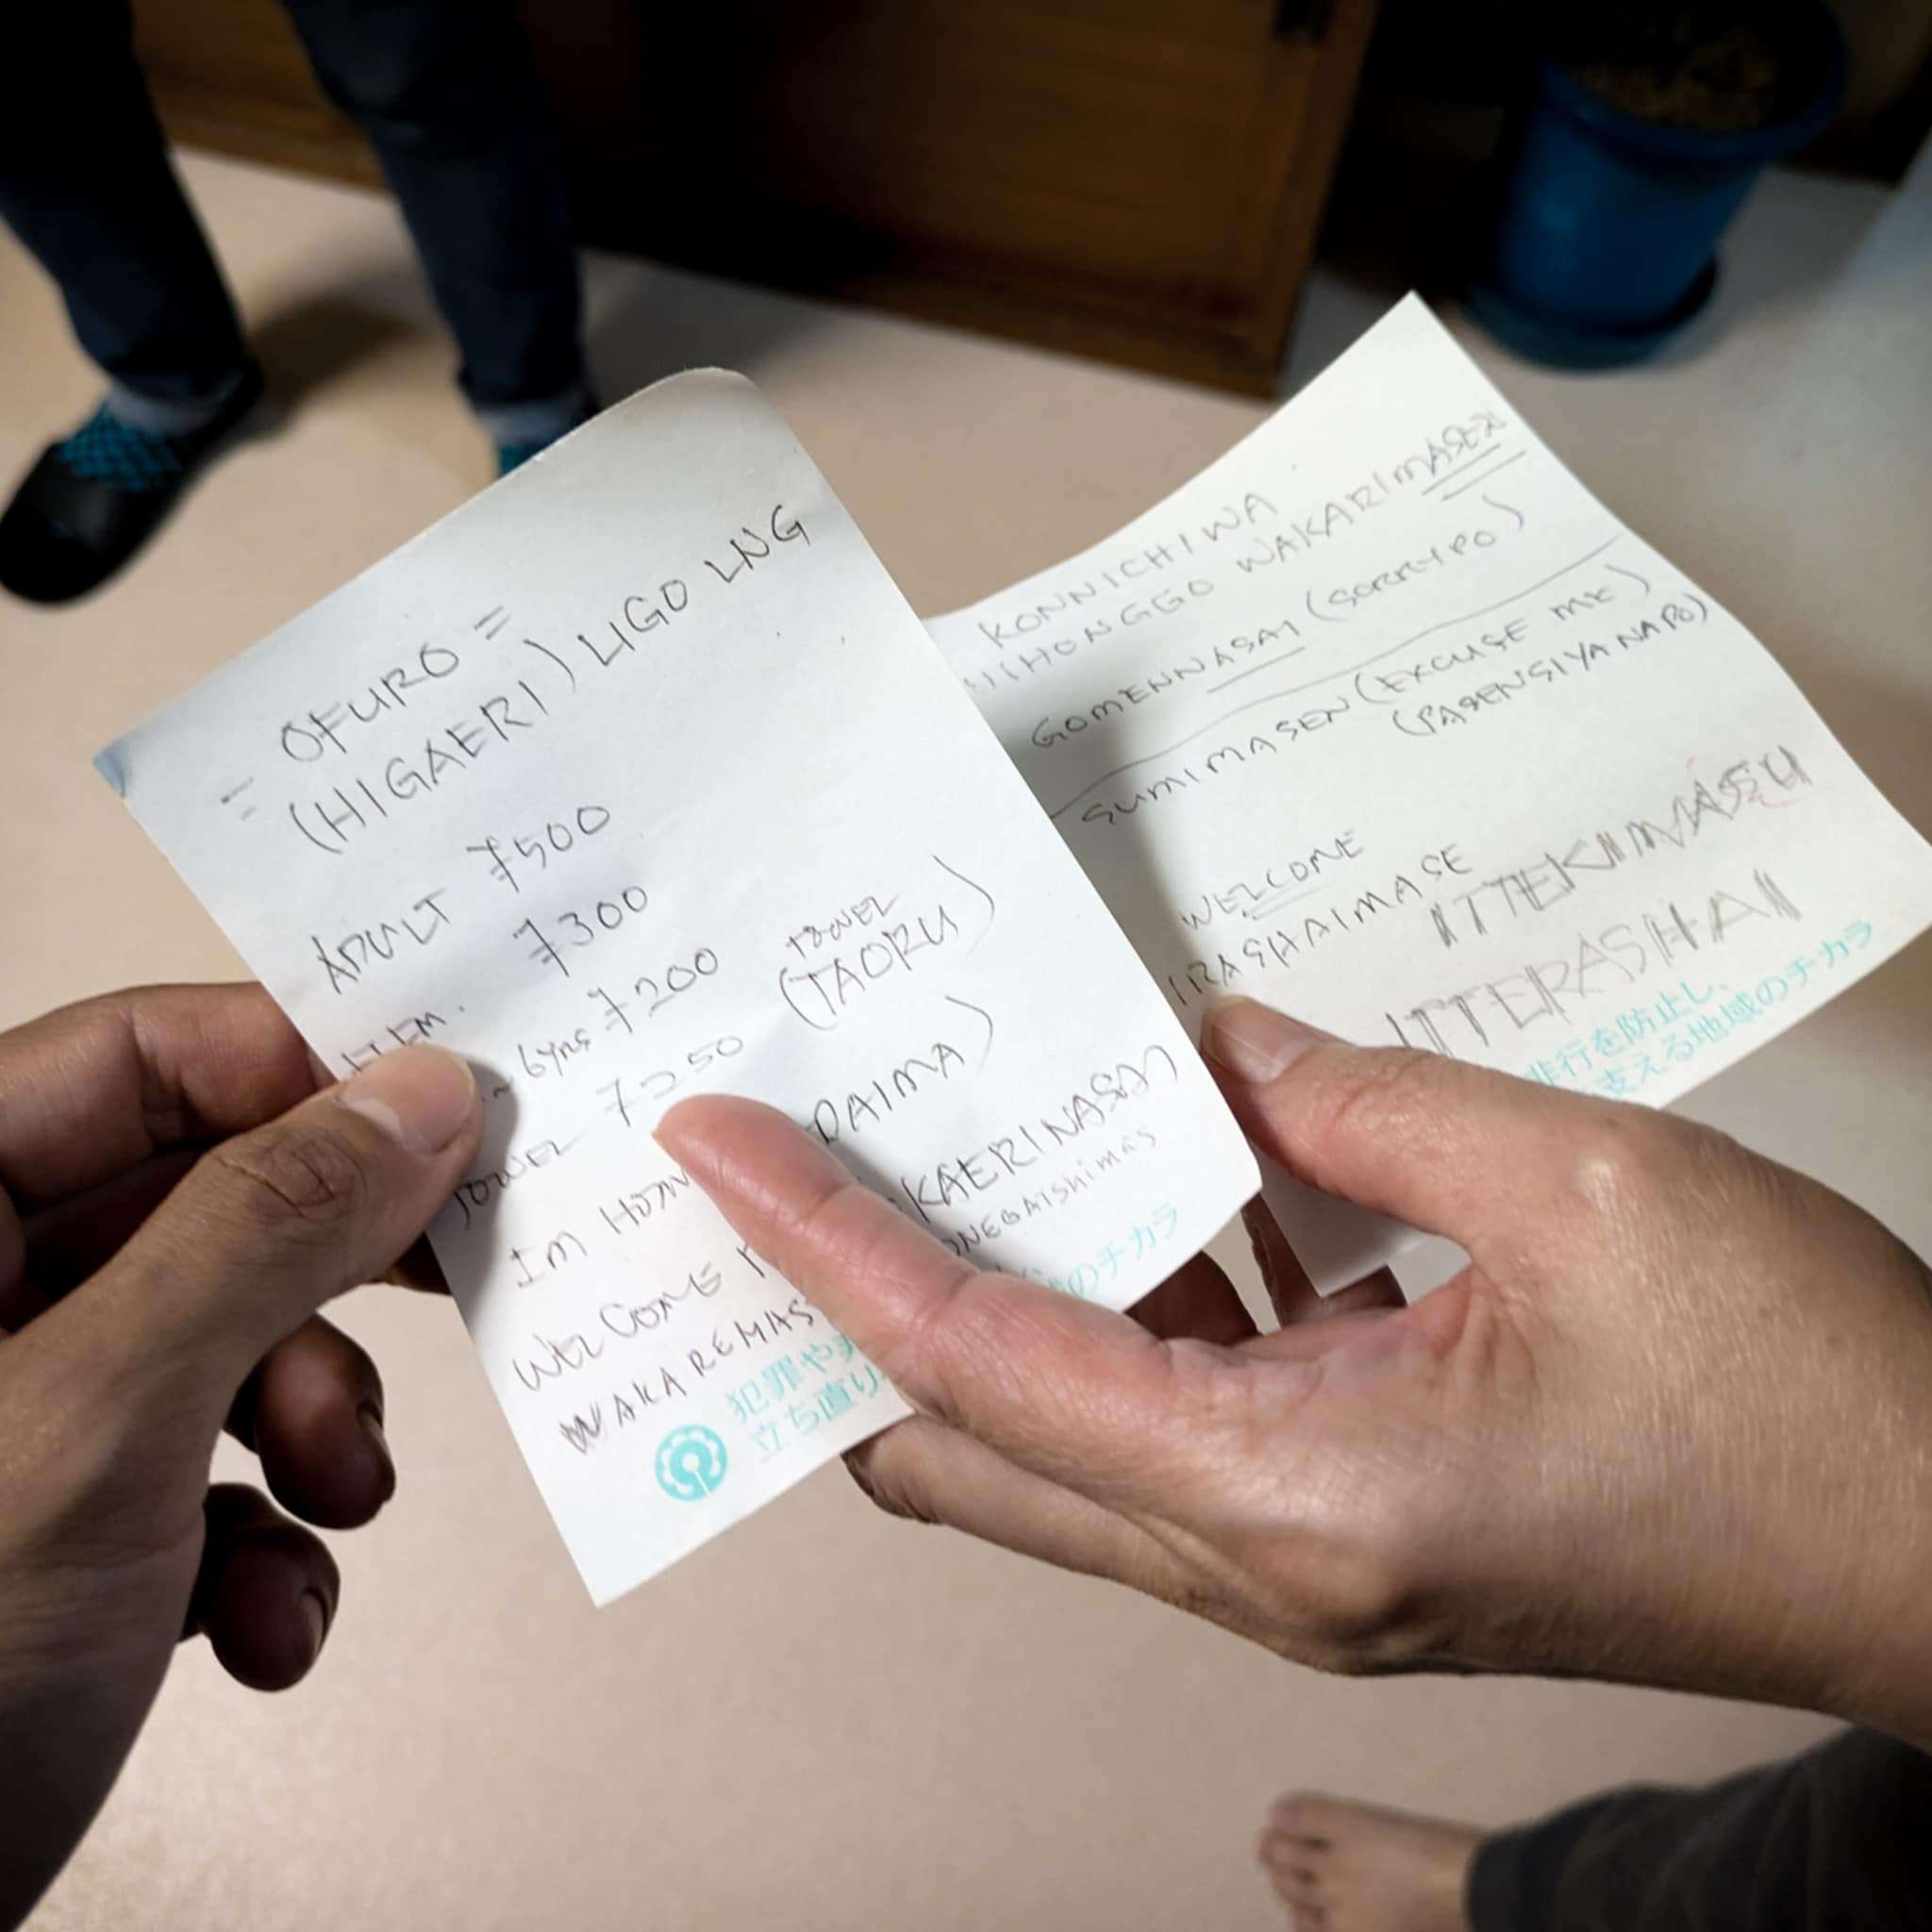 = OFURO =
(HIGAERI) LIGO LNG
ADULT ¥500
ELEM. ¥300
~ 6yrs ¥200
TOWEL ¥250 (TAORU) TOWEL
IM HOM DAIMA)
WELCOME KAERINASAI)
WAKAREMAS ONEGAISHIMAS
犯罪や
立ち直り のチカラ
KONNICHIWA
NIHONGGO WAKARIMASEN
GOMENNASAI (SORRY PO)
SUMIMASEN (EXCUSE ME)
(PASENSIYA NA PO)
WELCOME
IRASHAIMASE
ITTEKIMASU
ITTERASHAI
非行を防止し、
支える地域のチカラ